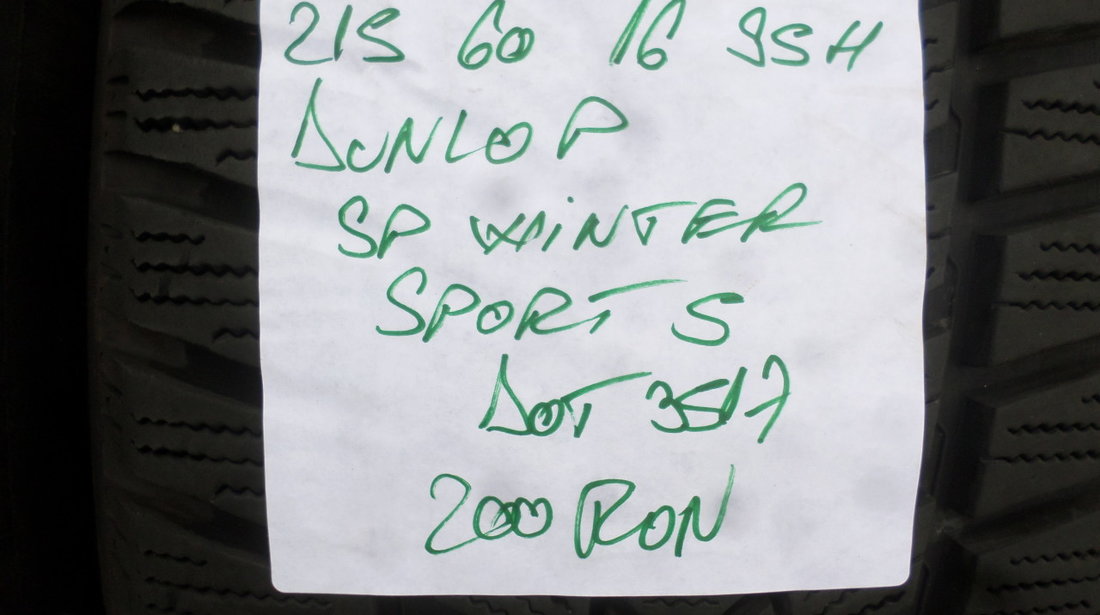 215 60 16 99H
DUNLOP
SP WINTER
SPORT 5
DOT 3517
200 RON